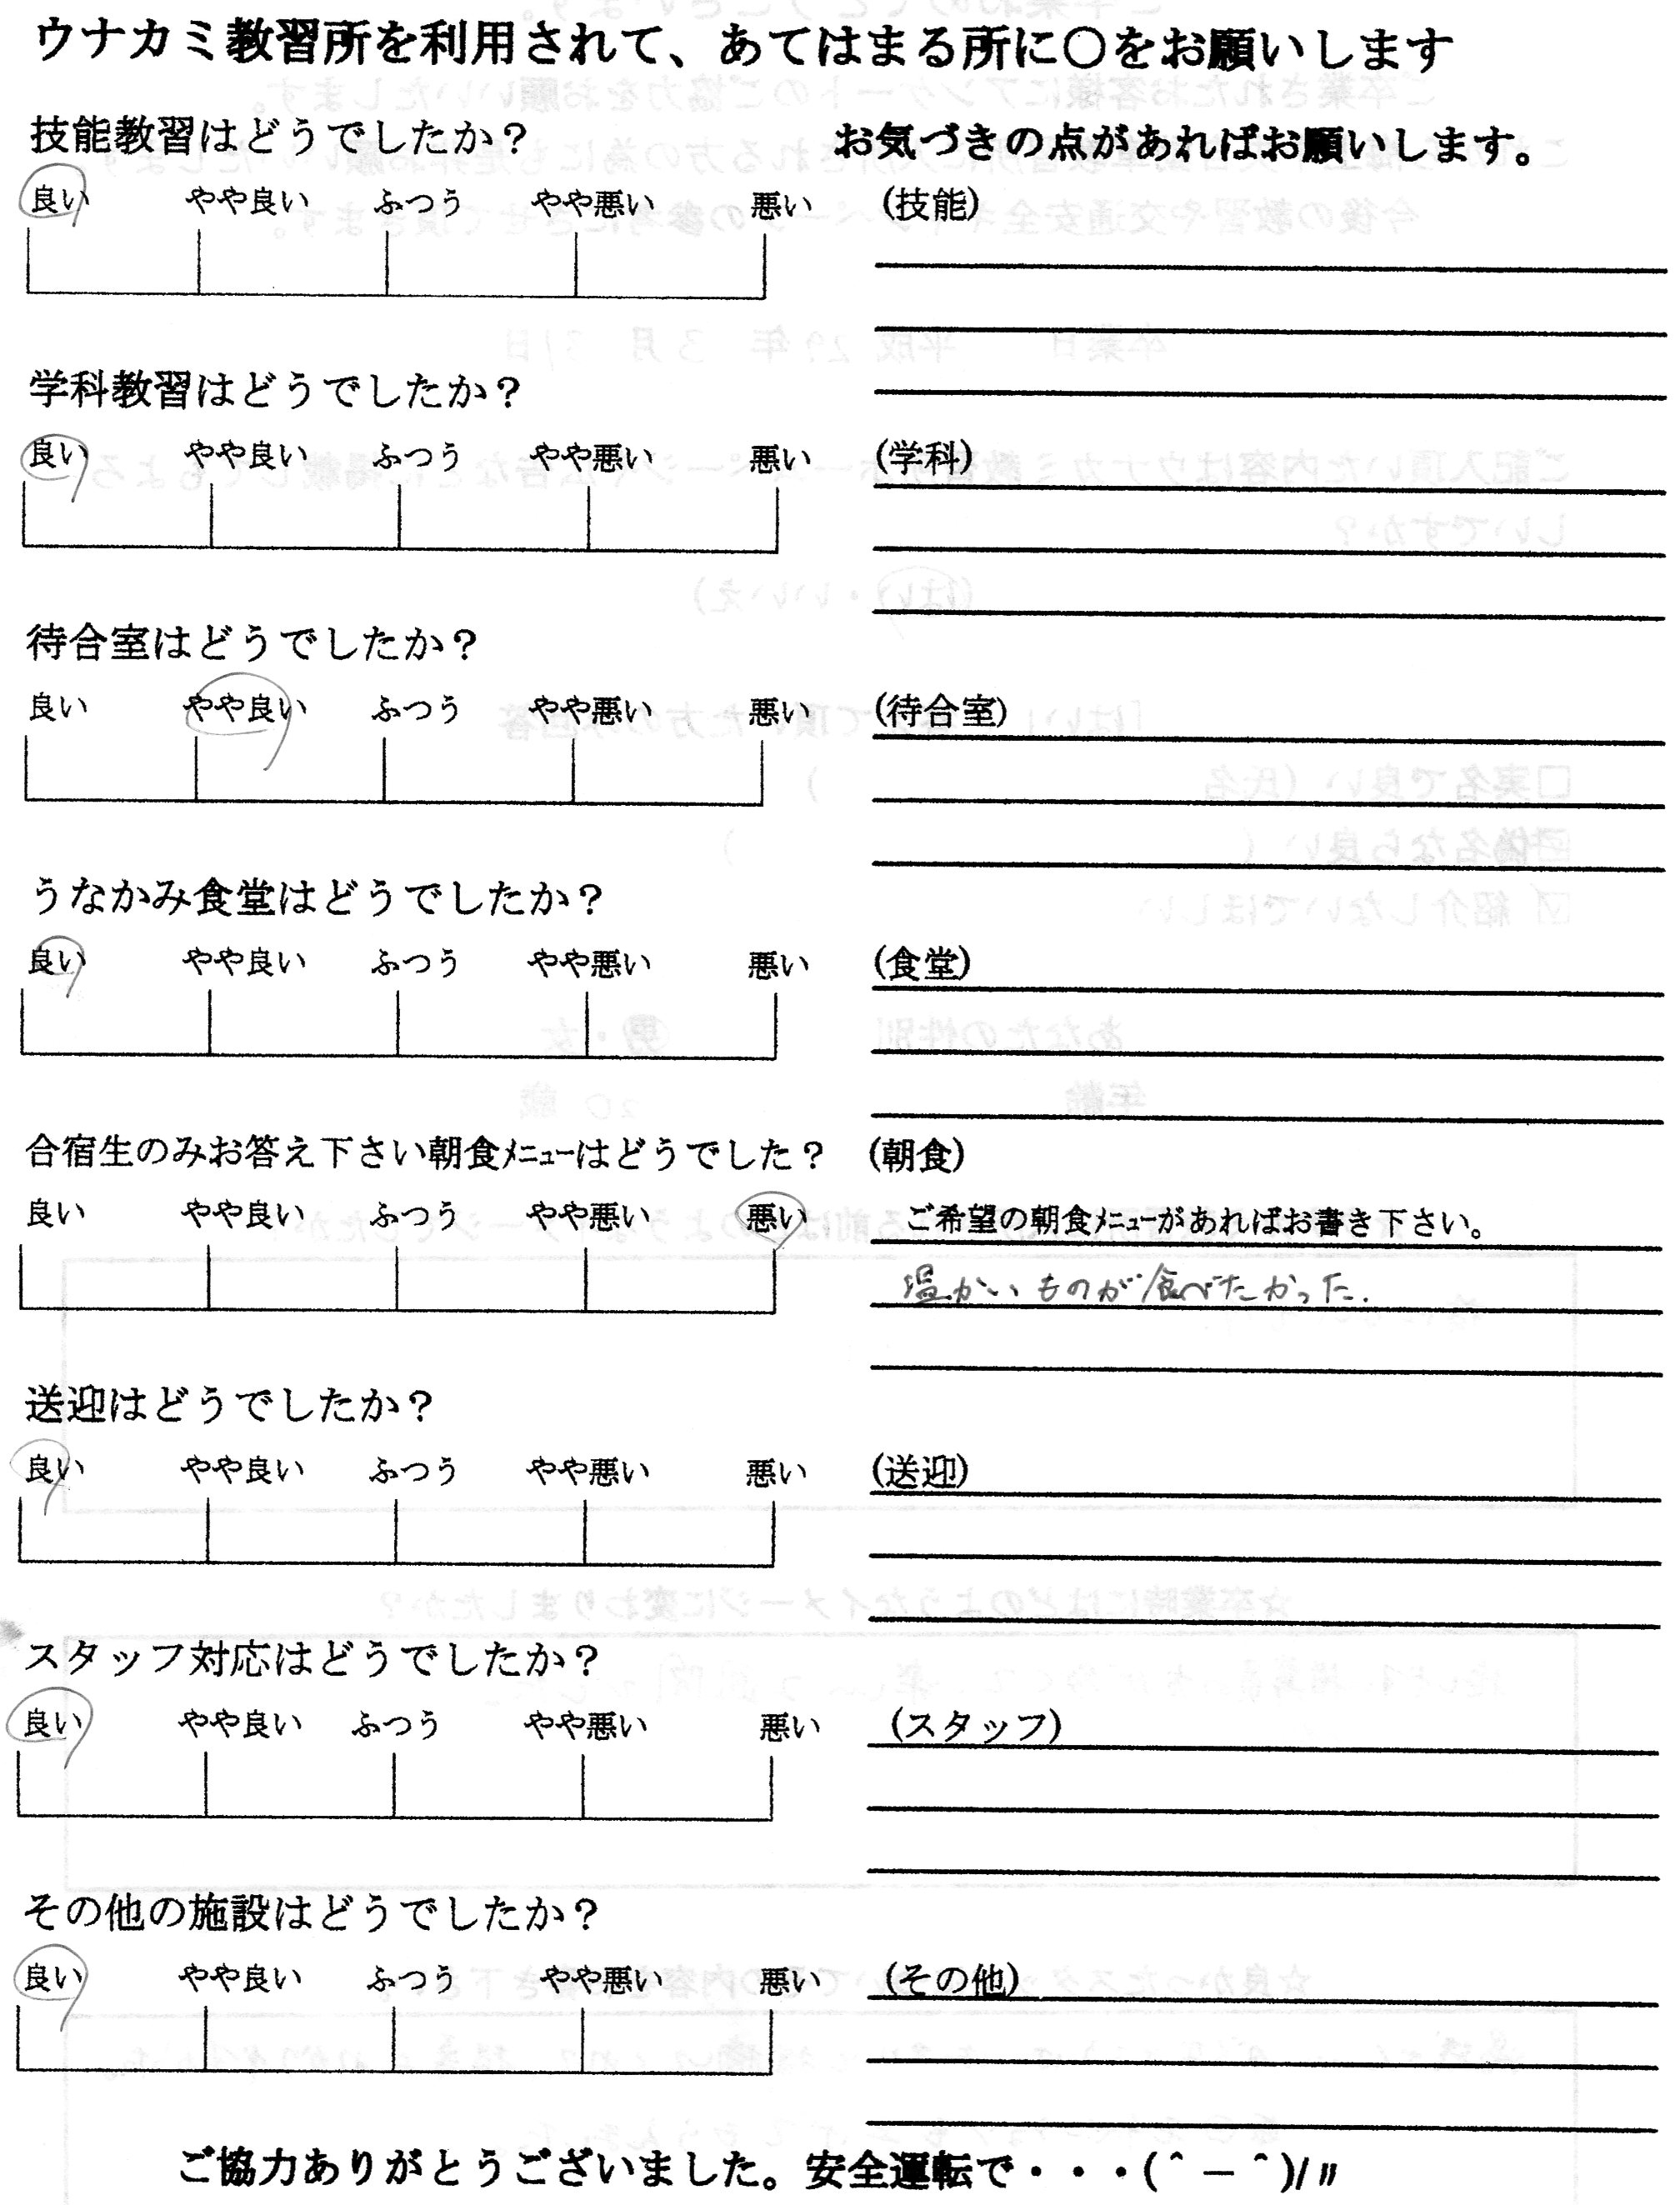 ウナカミ教習所を利用されて、あてはまる所に〇をお願いします
技能教習はどうでしたか？
お気づきの点があればお願いします。
良い やや良い ふつう やや悪い 悪い
(技能)
学科教習はどうでしたか？
良い やや良い ふつう やや悪い 悪い
(学科)
待合室はどうでしたか？
良い やや良い ふつう やや悪い 悪い
(待合室)
うなかみ食堂はどうでしたか？
良い やや良い ふつう やや悪い 悪い
(食堂)
合宿生のみお答え下さい朝食ﾒﾆｭｰはどうでした？
(朝食)
良い やや良い ふつう やや悪い 悪い
ご希望の朝食ﾒﾆｭｰがあればお書き下さい。
温かいものが食べたかった.
送迎はどうでしたか？
良い やや良い ふつう やや悪い 悪い
(送迎)
スタッフ対応はどうでしたか？
良い やや良い ふつう やや悪い 悪い
(スタッフ)
その他の施設はどうでしたか？
良い やや良い ふつう やや悪い 悪い
(その他)
ご協力ありがとうございました。安全運転で・・・(＾－＾)/〃